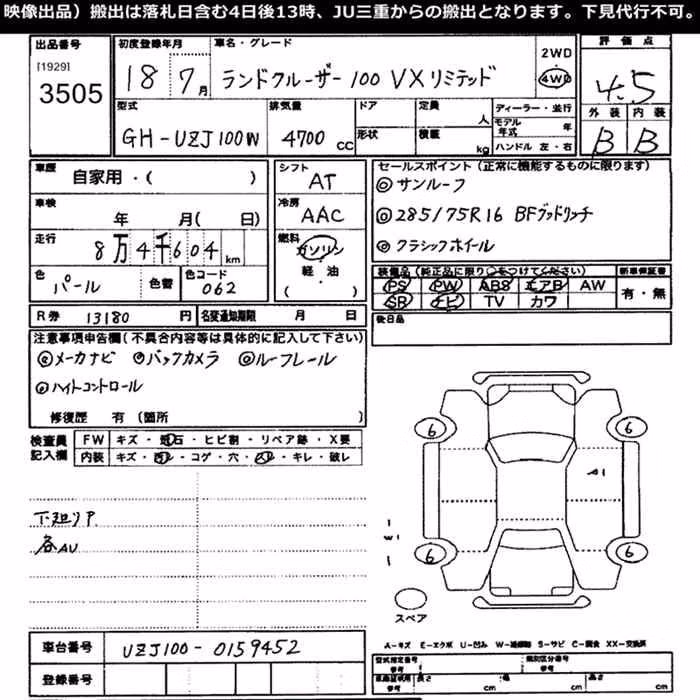 映像出品）搬出は落札日含む4日後13時、JU三重からの搬出となります。下見代行不可。
出品番号 初度登録年月 車名・グレード 評価点
[1929]
3505
18 7月 ランドクルーザー100 VXリミテッド 2WD 4WD 4.5
型式 排気量 ドア 定員 人 ディーラー・並行 外装 内装
GH-UZJ100W 4700 CC 形状 積載 kg モデル年式 年 ハンドル 左・右 B B
車歴 自家用・( ) シフト AT セールスポイント（正常に機能するものに限ります）
◎サンルーフ
車検 年 月( 日) 冷房 AAC ◎285/75R16 BFグッドリッチ
走行 8万4千604 km 燃料 ガソリン 軽・油 ( ) ◎クラシックホイール
色 パール 色替 色コード 062
装備品（純正品に限り○をつけてください） 新車保証書
PS PW ABS エアB AW 有・無
SR ナビ TV カワ
R券 13180 円 名変通知期限 月 日 後日品
注意事項申告欄（不具合内容等は具体的に記入して下さい）
◎メーカナビ ◎バックカメラ ◎ルーフレール
◎ハイトコントロール
修復歴 有（箇所 ）
検査員記入欄 FW キズ・飛石・ヒビ割・リペア跡・X要
内装 キズ・汚レ・コゲ・穴・スレ・キレ・破レ
下廻りP
各AU
6 6
A1
W1
6 6
スペア
A-キズ E-エクボ U-凹み W-補修跡 S-サビ C-腐食 XX-交換済
車台番号 UZJ100-0159452
登録番号
型式指定番号 参考 類別区分番号 参考
長さ cm 幅 cm 高さ cm